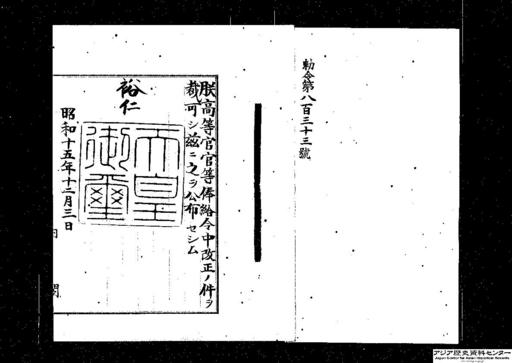 勅令第八百三十三號
朕高等官官等俸給令中改正ノ件ヲ
裁可シ茲ニ之ヲ公布セシム
裕仁
天皇
御璽
昭和十五年十二月三日
内
閣
アジア歴史資料センター
Japan Center for Asian Historical Records